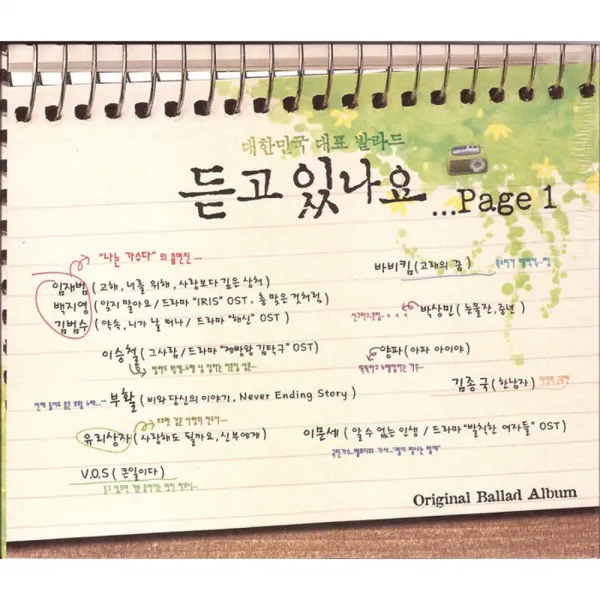 대한민국 대표 발라드
듣고 있나요
...Page 1
"나는 가수다" 의 출연진...
임재범 (고해, 너를 위해, 사랑보다 깊은 상처)
백지영 (잊지 말아요 / 드라마 "IRIS" OST, 총 맞은 것처럼)
김범수 (약속, 니가 날 떠나 / 드라마 "해신" OST)
이승철 (그사람 / 드라마 "제빵왕 김탁구" OST)
부활 (비와 당신의 이야기, Never Ending Story)
유리상자 (사랑해도 될까요, 신부에게)
V.O.S (큰일이다)
바비킴 (고래의 꿈)
박상민 (눈물잔, 중년)
양파 (아파 아이야)
김종국 (한남자)
이문세 (알 수 없는 인생 / 드라마 "발칙한 여자들" OST)
Original Ballad Album